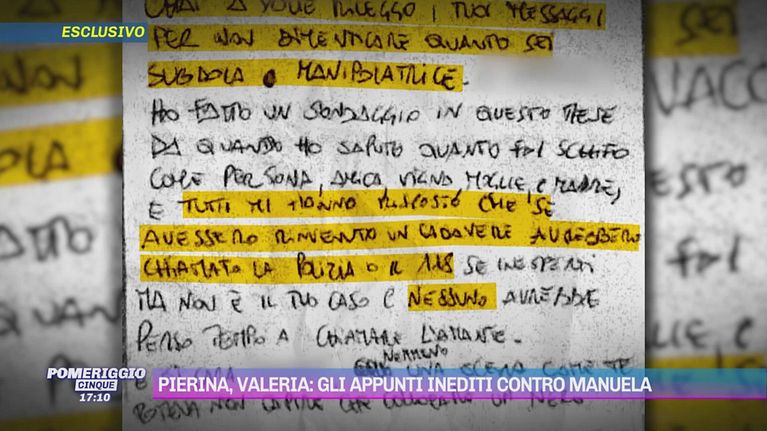 ESCLUSIVO
RILEGGO I TUOI MESSAGGI
PER NON DIMENTICARE QUANTO SEI
SUBDOLA E MANIPOLATRICE.
HO FATTO UN SONDAGGIO IN QUESTO MESE
DA QUANDO HO SAPUTO QUANTO FAI SCHIFO
COME PERSONA, AMICA, VICINA, MOGLIE, E MADRE,
E TUTTI MI HANNO RISPOSTO CHE SE
AVESSERO RINVENUTO UN CADAVERE AVREBBERO
CHIAMATO LA POLIZIA O IL 118 SE INESPERTI
MA NON È IL TUO CASO E NESSUNO AVREBBE
PERSO TEMPO A CHIAMARE L'AMANTE.
NEMMENO
UNA SCEMA COME TE
POTEVA NON CAPIRE CHE
POMERIGGIO
CINQUE
17:10
PIERINA, VALERIA: GLI APPUNTI INEDITI CONTRO MANUELA